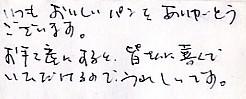 いつも おいしい パンを ありがとう
ございます。
お手土産にすると、皆さんに喜んで
いただけるので、うれしいです。